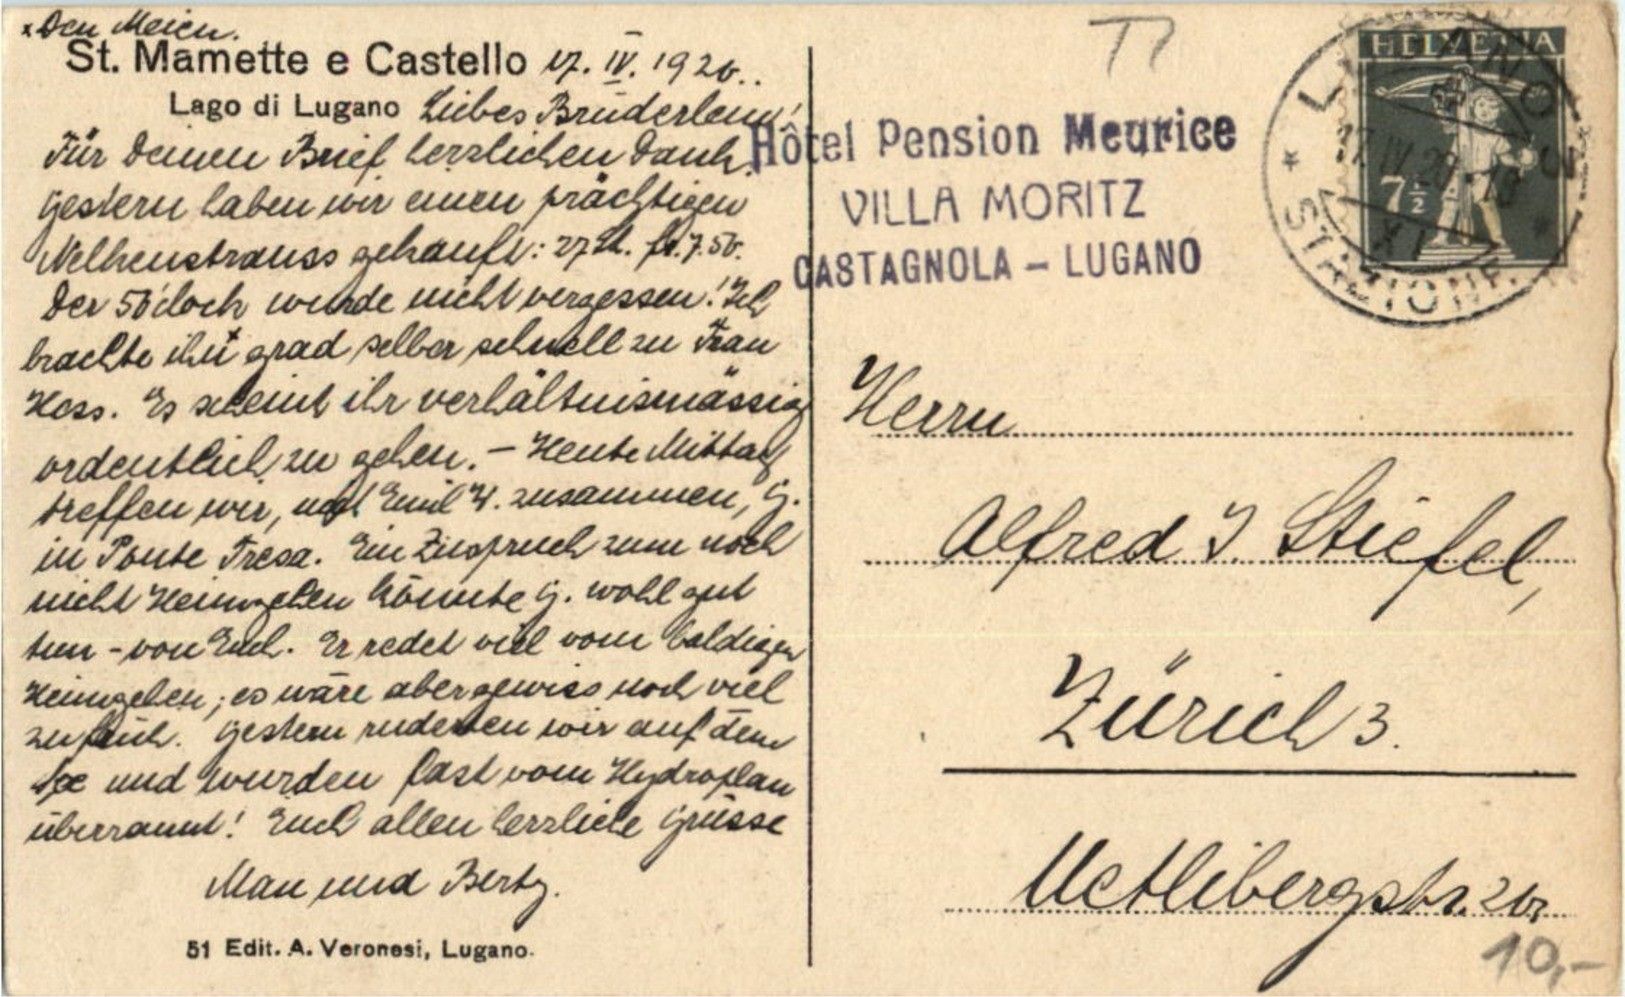 × Den Meien.
St. Mamette e Castello 17. IV. 1920..
Lago di Lugano Liebes Brüderlein!
Für Deinen Brief herzlichen Dank.
Gestern haben wir einen prächtigen
Nelkenstrauss gekauft: 27 St. fr. 7.50.
Der 50 wurde nicht vergessen! Ich
brachte ihn× grad selber schnell zu Frau
Hess. Es scheint ihr verhältnismässig
ordentlich zu gehen. – Heute Mittag
treffen wir, und Emil H. zusammen, G.
in Ponte Tresa. Ein Zuspruch zum noch
nicht Heimgehen könnte G. wohl gut
tun – von Euch. Er redet viel vom baldigen
Heimgehen; es wäre aber gewiss noch viel
zu früh. Gestern ruderten wir auf dem
See und wurden fast vom Hydroplan
überrannt! Euch allen herzliche Grüsse
Max und Berty.
51 Edit. A. Veronesi, Lugano.
Hôtel Pension Meurice
VILLA MORITZ
CASTAGNOLA – LUGANO
HELVETIA
7½
LUGANO
17.IV.20.-18
XI
STAZIONE.
Herrn
Alfred J. Stiefel,
Zürich 3.
Uetlibergstr. 20
10,-